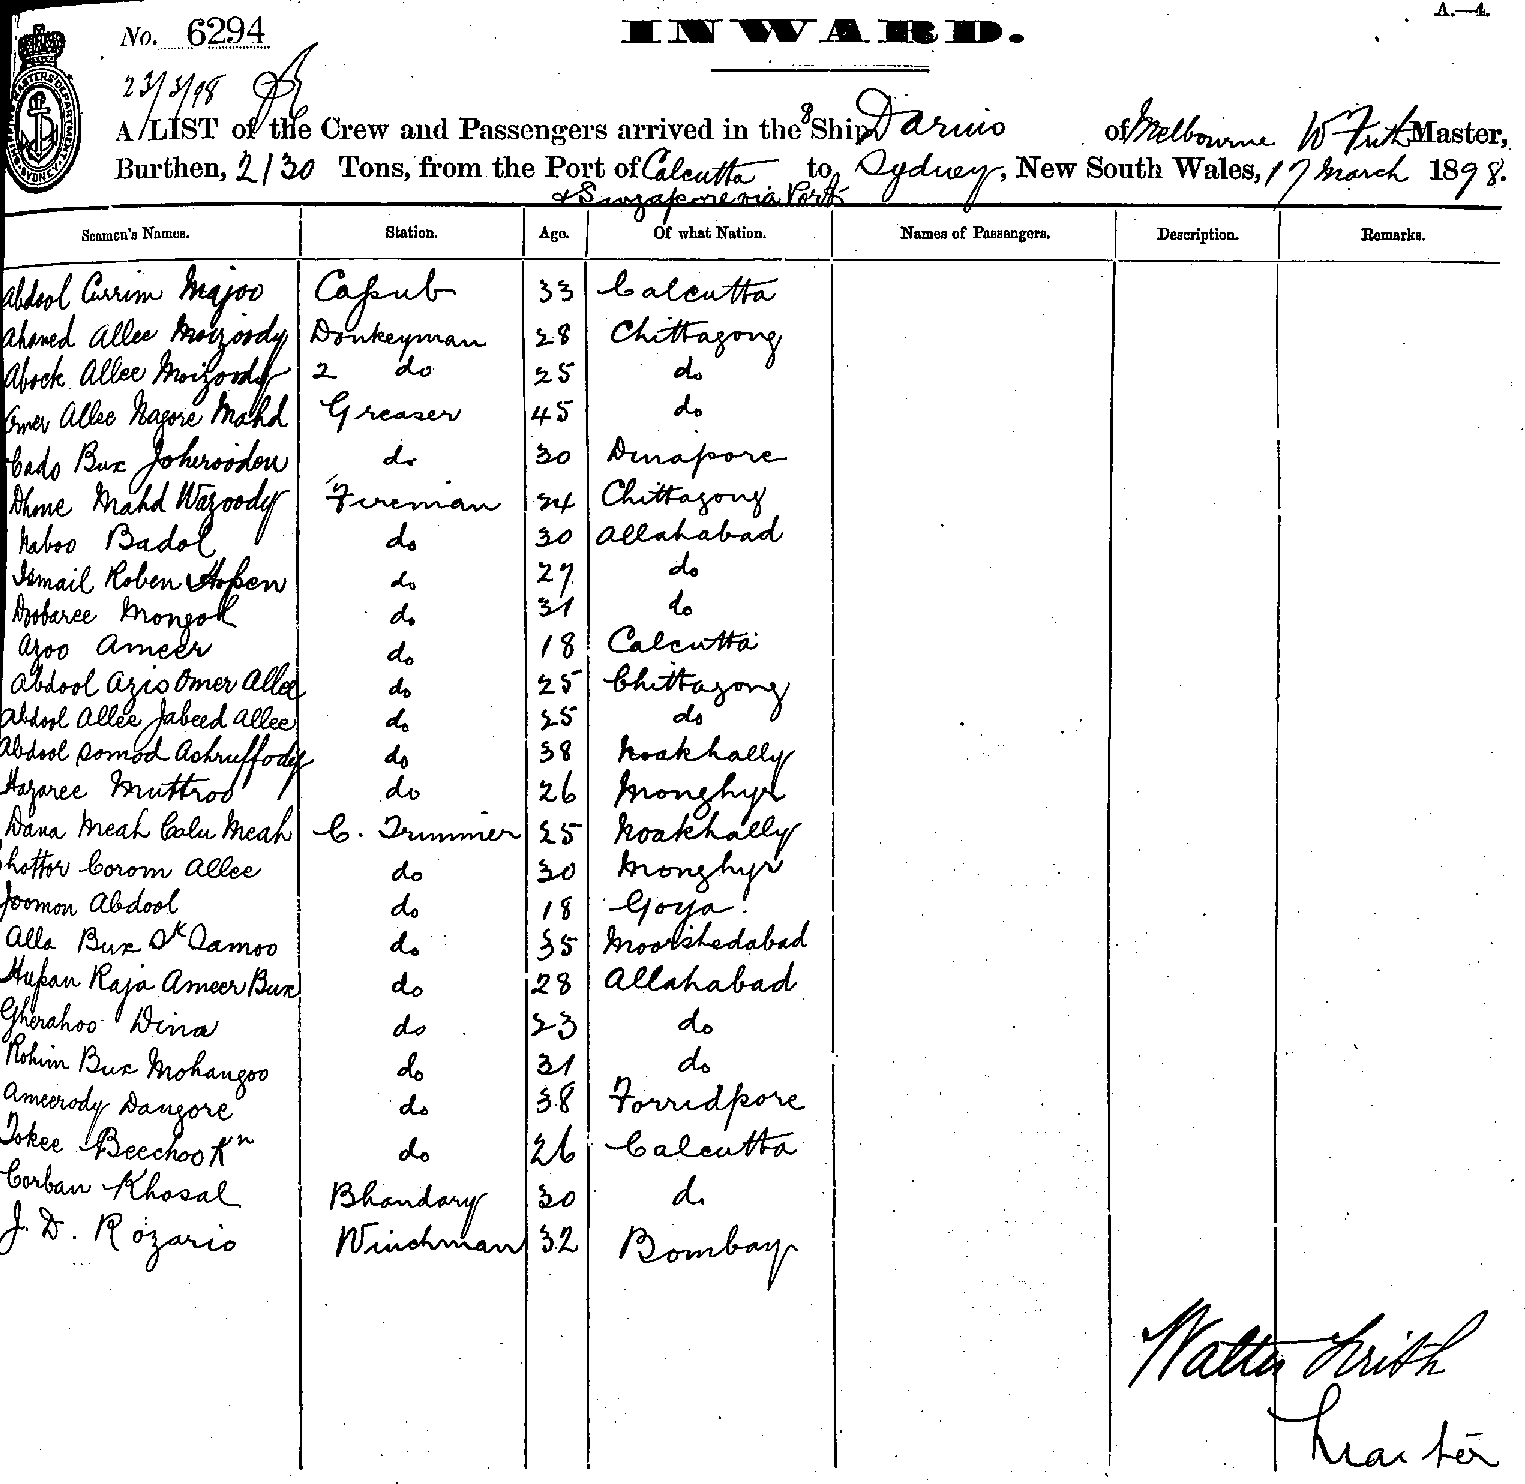 A.—4.
No. 6294
INWARD.
23/3/98
A LIST of the Crew and Passengers arrived in the SShip Darius of Melbourne W Frith Master,
Burthen, 2130 Tons, from the Port of Calcutta to Sydney, New South Wales, 17 March 1898.
& Singapore via Port
Seamen's Names. Station. Age. Of what Nation. Names of Passengers. Description. Remarks.
Abdool Currim Majoo Cassub 33 Calcutta
Ahamed Allee Moizoody Donkeyman 28 Chittagong
Abock Allee Moizoody 2 do 25 do
Omer Allee Nagore Mahd Greaser 45 do
Cado Bux Joheroodeen do 30 Dinapore
Dhone Mahd Wazoody Fireman 24 Chittagong
Naboo Badol do 30 Allahabad
Ismail Roben Hossen do 27 do
Doobaree Mongol do 31 do
Azoo Ameer do 18 Calcutta
Abdool Azis Omer Allee do 25 Chittagong
Abdool Allee Jabeed Allee do 25 do
Abdool Somod Ashruffody do 38 Noakhally
Hazaree Muttroo do 26 Monghyr
Dana Meah Calu Meah C. Trimmer 25 Noakhally
Corom Allee do 30 Monghyr
Joomon Abdool do 18 Goya
Alla Bux Sk Samoo do 35 Moorshedabad
Hussan Raja Ameer Bux do 28 Allahabad
Gherahoo Dina do 23 do
Rohim Bux Mohangoo do 31 do
Ameerody Dangore do 38 Forridpore
Tokee Beechoo Kn do 26 Calcutta
Corban Khosal Bhandary 30 do
J. D. Rozario Winchman 32 Bombay
Walter Frith
Master